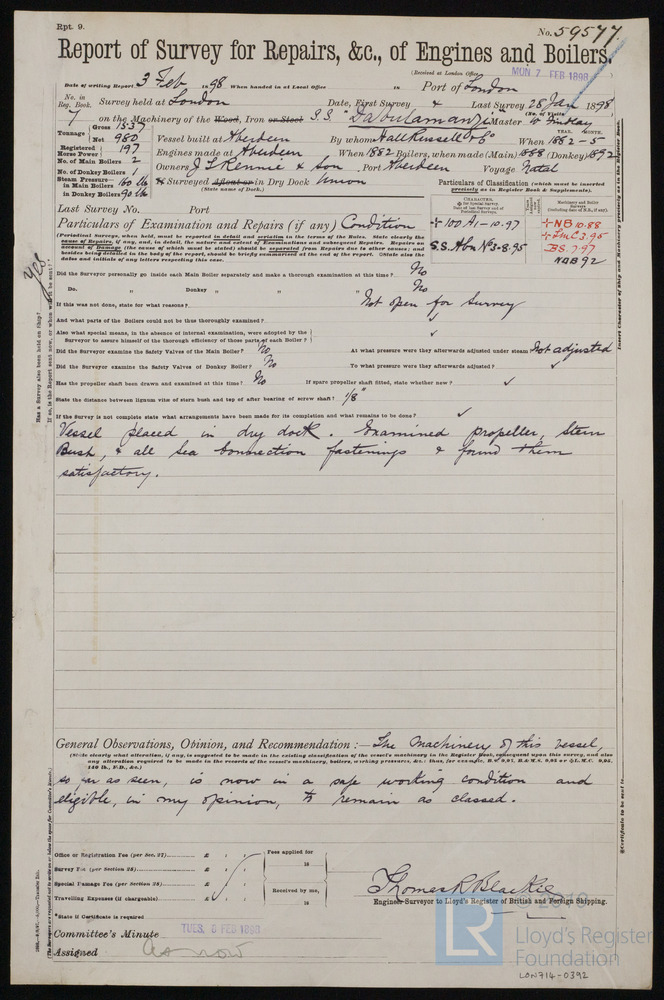 Rpt. 9.
No. 59577
Report of Survey for Repairs, &c., of Engines and Boilers.
(Received at London Office MON 7 FEB 1898)
Date of writing Report 3 Feb 1898 When handed in at Local Office 18 Port of London
No. in Reg. Book. Survey held at London Date, First Survey & Last Survey 28 Jan 1898
7 on the Machinery of the Wood, Iron or Steel S.S. "Dabulamanzi" Master W Findlay
(No. of Visits )
Tonnage Gross 1537 Net 960 Vessel built at Aberdeen By whom Hall Russell & Co When 1882 - 5
YEAR. MONTH.
Registered Horse Power 197 Engines made at Aberdeen When 1882 Boilers, when made (Main) 1888 (Donkey) 1892
No. of Main Boilers 2
No. of Donkey Boilers 1 Owners J T Rennie & Son Port Aberdeen Voyage Natal
Steam Pressure in Main Boilers 160 lb in Donkey Boilers 90 lb If Surveyed Afloat or in Dry Dock Union
(State name of Dock.)
Particulars of Classification (which must be inserted precisely as in Register Book & Supplements).
Last Survey No. Port
CHARACTER. Machinery and Boiler Surveys
Particulars of Examination and Repairs (if any) Condition
+ 100 A1 - 10.97 + NB 10.88
+ LMC 3.95
S.S. Abn No 3 - 8.95 BS. 7.97
NDB 92
(Periodical Surveys, when held, must be reported in detail and seriatim in the terms of the Rules. State clearly the cause of Repairs, if any, and, in detail, the nature and extent of Examinations and subsequent Repairs. Repairs on account of Damage (the cause of which must be stated) should be separated from Repairs due to other causes; and besides being detailed in the body of the report, should be briefly summarised at the end of the report. State also the dates and initials of any letters respecting this case.
Did the Surveyor personally go inside each Main Boiler separately and make a thorough examination at this time? No
Do. " Donkey " " " No
If this was not done, state for what reasons? Not open for survey
And what parts of the Boilers could not be thus thoroughly examined? ✓
Also what special means, in the absence of internal examination, were adopted by the Surveyor to assure himself of the thorough efficiency of those parts of each Boiler? ✓
Did the Surveyor examine the Safety Valves of the Main Boiler? No At what pressure were they afterwards adjusted under steam Not adjusted
Did the Surveyor examine the Safety Valves of Donkey Boiler? No To what pressure were they afterwards adjusted? ✓
Has the propeller shaft been drawn and examined at this time? No If spare propeller shaft fitted, state whether new? ✓
State the distance between lignum vitæ of stern bush and top of after bearing of screw shaft? 1/8"
If the Survey is not complete state what arrangements have been made for its completion and what remains to be done? ✓
Vessel placed in dry dock. Examined propeller, stern
Bush, & all sea connection fastenings & found them
satisfactory.
General Observations, Opinion, and Recommendation :— The machinery of this vessel,
(State clearly what alteration, if any, is suggested to be made in the existing classification of the vessel's machinery in the Register Book, consequent upon this survey, and also any alteration required to be made in the records of the vessel's machinery, boilers, working pressures, &c.:
so far as seen, is now in a safe working condition and
eligible, in my opinion, to remain as classed.
Office or Registration Fee (per Sec. 27) £ : :
Survey Fee (per Section 28) £ : :
Special Damage Fee (per Section 28) £ : :
Travelling Expenses (if chargeable) £ : :
Fees applied for
18
Received by me,
18
Thomas R Blackie
Engineer Surveyor to Lloyd's Register of British and Foreign Shipping.
*State if Certificate is required
Committee's Minute TUES. 8 FEB 1898
Assigned As now
Has a Survey also been held on Ship? Yes
© 2019
LR
Lloyd's Register
Foundation
LON714-0392